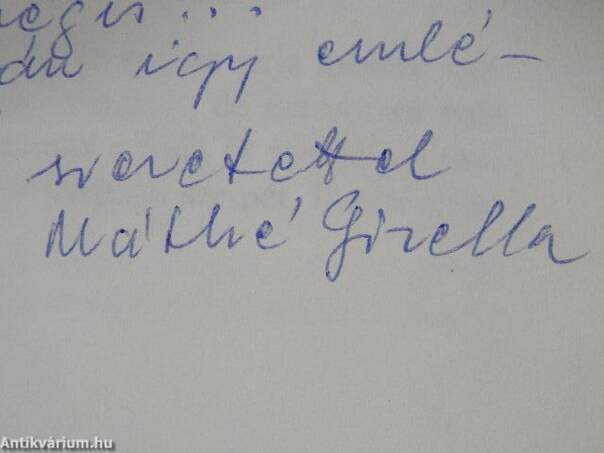 mégis...
án így emlé-
szeretettel
Máthé Gizella
Antikvárium.hu